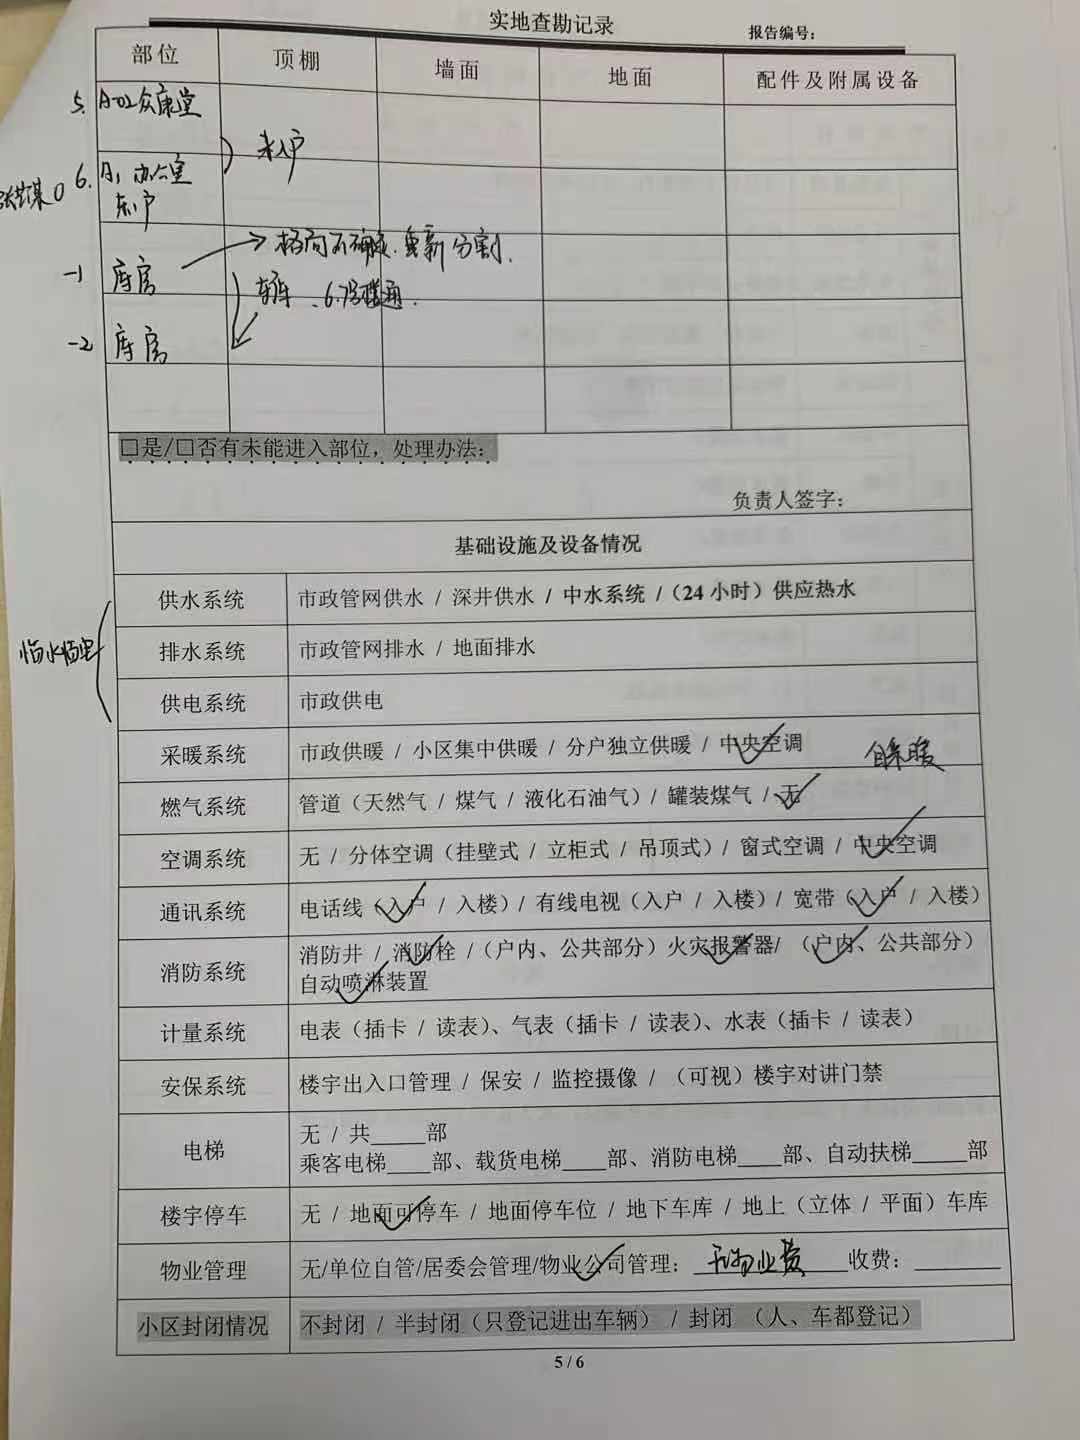 实地查勘记录
报告编号：
部位 顶棚 墙面 地面 配件及附属设备
5. A-02众康堂
未入户
6. A, 办公室
未入户
-1 库房 → 格局不确定.重新分割.
车库 . 6.7号楼通.
-2 库房
□是/□否有未能进入部位，处理办法：
负责人签字：
基础设施及设备情况
临水临电
供水系统 市政管网供水 / 深井供水 / 中水系统 /（24小时）供应热水
排水系统 市政管网排水 / 地面排水
供电系统 市政供电
采暖系统 市政供暖 / 小区集中供暖 / 分户独立供暖 / 中央空调 自采暖
燃气系统 管道（天然气 / 煤气 / 液化石油气）/ 罐装煤气 / 无
空调系统 无 / 分体空调（挂壁式 / 立柜式 / 吊顶式）/ 窗式空调 / 中央空调
通讯系统 电话线（入户 / 入楼）/ 有线电视（入户 / 入楼）/ 宽带（入户 / 入楼）
消防系统 消防井 / 消防栓 /（户内、公共部分）火灾报警器/ （户内、公共部分）
自动喷淋装置
计量系统 电表（插卡 / 读表）、气表（插卡 / 读表）、水表（插卡 / 读表）
安保系统 楼宇出入口管理 / 保安 / 监控摄像 / （可视）楼宇对讲门禁
电梯 无 / 共_____部
乘客电梯____部、载货电梯____部、消防电梯____部、自动扶梯_____部
楼宇停车 无 / 地面可停车 / 地面停车位 / 地下车库 / 地上（立体 / 平面）车库
物业管理 无/单位自管/居委会管理/物业公司管理：无物业费 收费：________
小区封闭情况 不封闭 / 半封闭（只登记进出车辆） / 封闭 （人、车都登记）
5 / 6